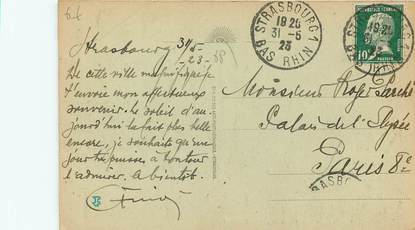 Strasbourg 31/5
-23-
De cette ville magnifique je
t'envoie mon affectueux
souvenir. Le soleil d'au-
jourd'hui la fait plus belle
encore, je souhaite qu'un
jour tu puisses à ton tour
l'admirer. A bientôt.
STRASBOURG 1
19 25
31-5
23
BAS RHIN
10c
Monsieur Roger
Palais de l'Elysée
Paris 8e